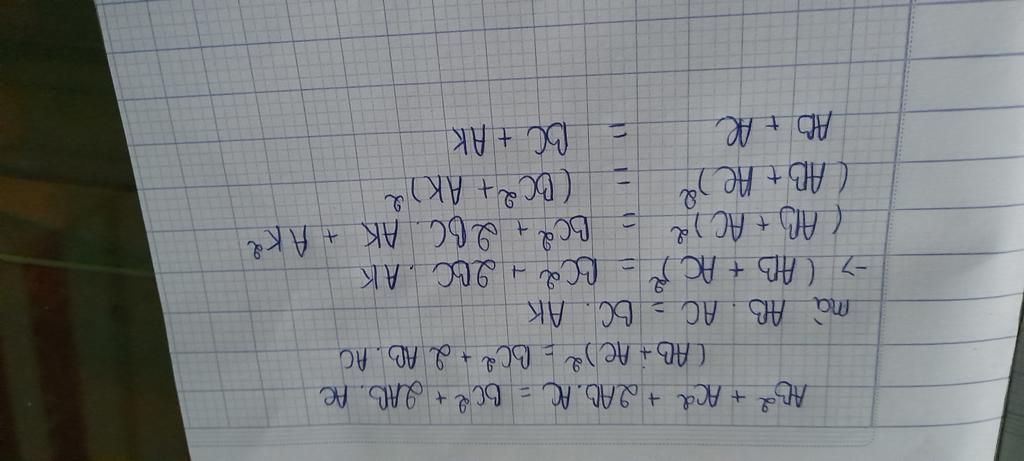 AB² + AC² + 2AB.AC = BC² + 2AB.AC
(AB + AC)² = BC² + 2 AB.AC
mà AB . AC = BC . AK
-> (AB + AC)² = BC² + 2BC . AK
(AB + AC)² = BC² + 2BC . AK + AK²
(AB + AC)² = (BC² + AK)²
AB + AC = BC + AK